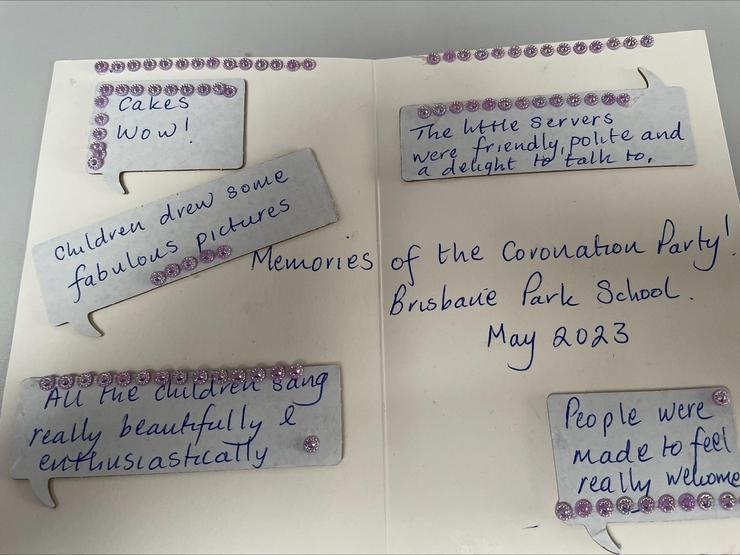 Cakes
Wow!
Children drew some
fabulous pictures
All the children sang
really beautifully &
enthusiastically
The little servers
were friendly, polite and
a delight to talk to.
Memories of the Coronation Party!
Brisbane Park School.
May 2023
People were
made to feel
really welcome